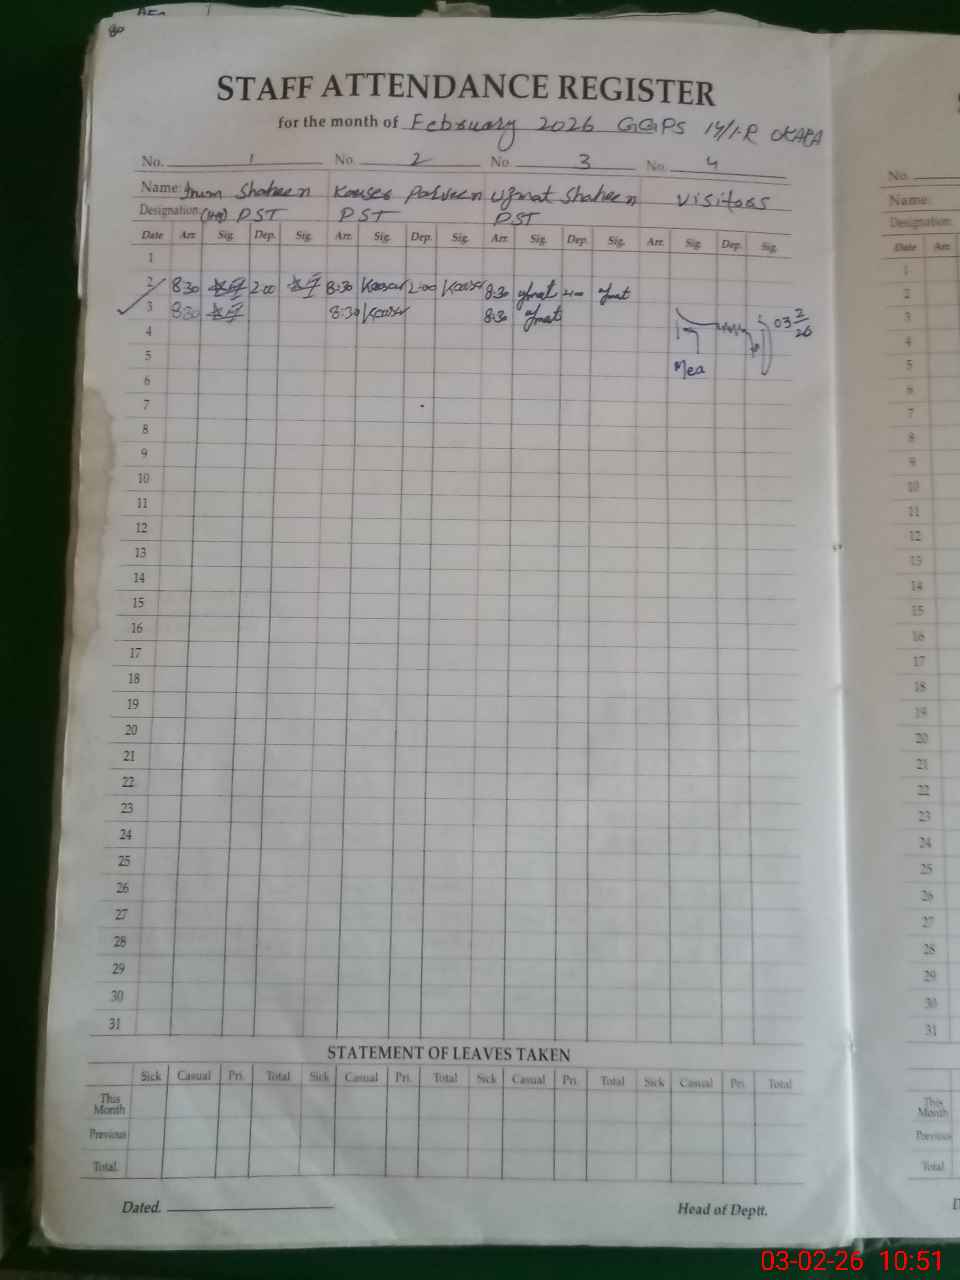 80
STAFF ATTENDANCE REGISTER
for the month of February 2026 GGPS 14/1-R OKARA
No. 1 No. 2 No. 3 No. 4
Name: Shaheen Kauser Parveen Uzmat Shaheen Visitors
Designation: PST PST PST
Date Arr. Sig. Dep. Sig. Arr. Sig. Dep. Sig. Arr. Sig. Dep. Sig. Arr. Sig. Dep. Sig.
1
2 8:30 2:00 8:30 Kauser 2:00 Kauser 8:30 Uzmat 2:00 Uzmat
3 8:30 8:30 Kauser 8:30 Uzmat 03 2/26
4
5
Mea
6
7
8
9
10
11
12
13
14
15
16
17
18
19
20
21
22
23
24
25
26
27
28
29
30
31
STATEMENT OF LEAVES TAKEN
Sick Casual Pri. Total Sick Casual Pri. Total Sick Casual Pri. Total Sick Casual Pri. Total
This
Month
Previous
Total
Dated. Head of Deptt.
No.
Name:
Designation:
Date Arr.
1
2
3
4
5
6
7
8
9
10
11
12
13
14
15
16
17
18
19
20
21
22
23
24
25
26
27
28
29
30
31
This
Month
Previous
Total
03-02-26 10:51